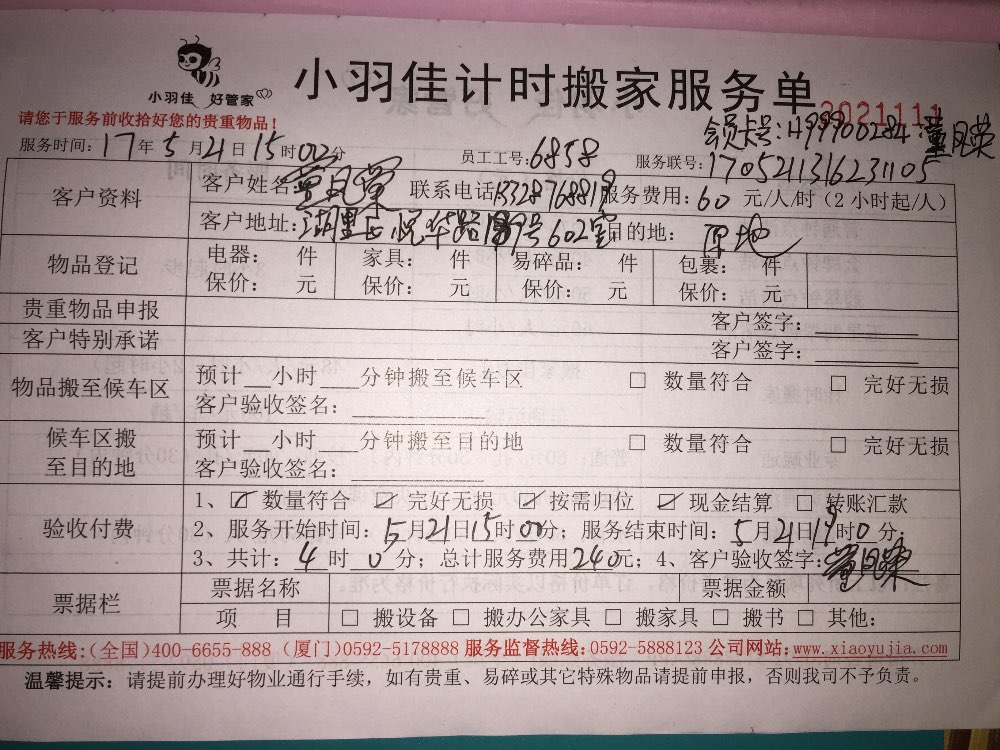 小羽佳 好管家
小羽佳计时搬家服务单
2021111
请您于服务前收拾好您的贵重物品!
会员卡号:H99900284 董月荣
服务时间:17年5月21日15时00分 员工工号:6858 服务联号:1705211316231105
客户资料 客户姓名:董月荣 联系电话13328768819 服务费用:60元/人/时(2小时起/人)
客户地址:湖里区悦华路189号602室 目的地:原地
物品登记 电器: 件 家具: 件 易碎品: 件 包裹: 件
保价: 元 保价: 元 保价: 元 保价: 元
贵重物品申报 客户签字:
客户特别承诺 客户签字:
物品搬至候车区 预计 小时 分钟搬至候车区 □ 数量符合 □ 完好无损
客户验收签名:
候车区搬至目的地 预计 小时 分钟搬至目的地 □ 数量符合 □ 完好无损
客户验收签名:
验收付费 1、☑ 数量符合 ☑ 完好无损 ☑ 按需归位 ☑ 现金结算 □ 转账汇款
2、服务开始时间:5月21日15时00分;服务结束时间:5月21日19时0分;
3、共计:4时0分;总计服务费用240元;4、客户验收签字:董月荣
票据栏 票据名称 票据金额
项 目 □ 搬设备 □ 搬办公家具 □ 搬家具 □ 搬书 □ 其他:
服务热线:(全国)400-6655-888 (厦门)0592-5178888 服务监督热线:0592-5888123 公司网站:www.xiaoyujia.com
温馨提示:请提前办理好物业通行手续,如有贵重、易碎或其它特殊物品请提前申报,否则我司不予负责。